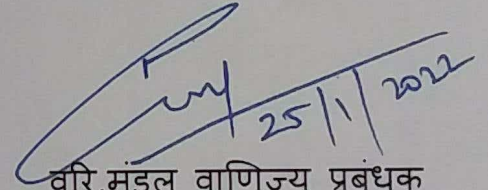 25/1/2022
वरि.मंडल वाणिज्य प्रबंधक